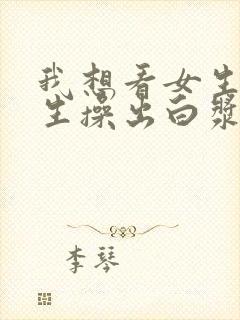 我想看女生
生操出白浆
李琴